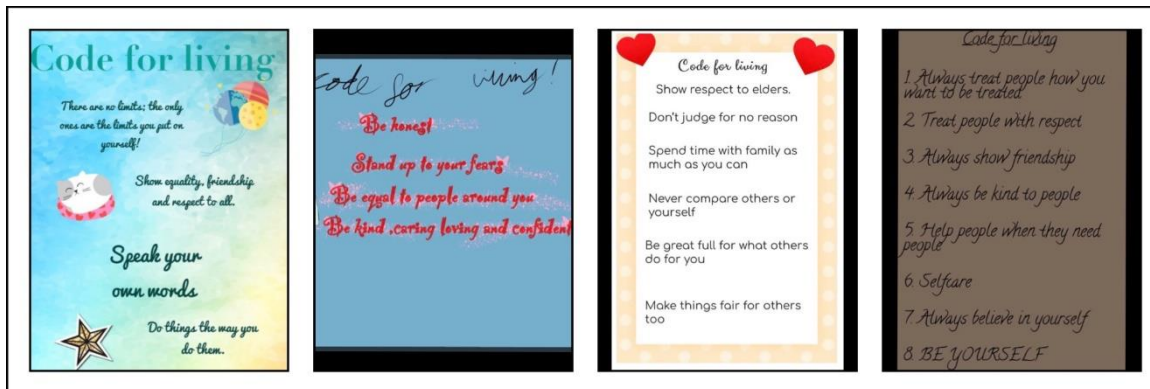 Code for living
There are no limits; the only
ones are the limits you put on
yourself!
Show equality, friendship
and respect to all.
Speak your
own words
Do things the way you
do them.
code for living!
Be honest
Stand up to your fears
Be equal to people around you
Be kind ,caring loving and confident
Code for living
Show respect to elders.
Don't judge for no reason
Spend time with family as
much as you can
Never compare others or
yourself
Be great full for what others
do for you
Make things fair for others
too
Code for living
1. Always treat people how you
want to be treated
2. Treat people with respect
3. Always show friendship
4. Always be kind to people
5. Help people when they need
people
6. Selfcare
7. Always believe in yourself
8. BE YOURSELF